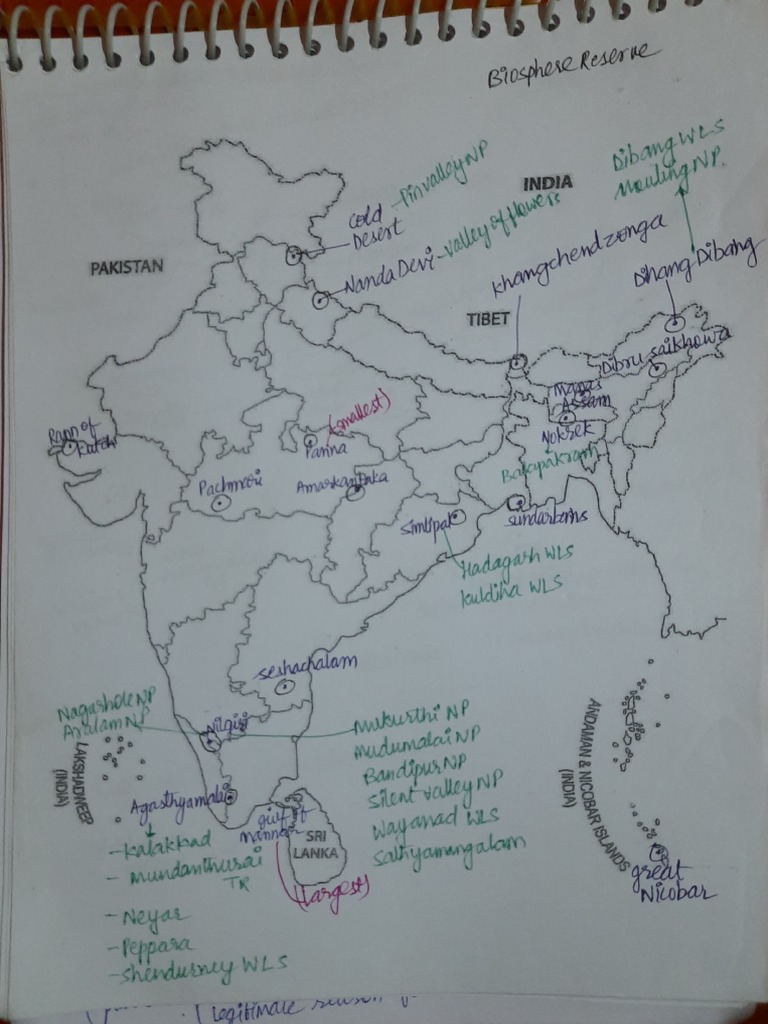 Biosphere Reserve
Dibang WLS
Mouling NP.
INDIA
Pin valley NP
Cold
Desert
PAKISTAN
Nanda Devi - valley of flowers
Khangchendzonga
Dihang Dibang
TIBET
Dibru saikhowa
Manas
Assam
Nokrek
Balapakram
Rann of
Kutch
(smallest)
Panna
Pachmari
Amarkantaka
Simlipal
sundarbans
Hadagarh WLS
Kuldiha WLS
seshachalam
Nagarhole NP
Aralam NP
Nilgiri
LAKSHADWEEP
(INDIA)
Mukurthi NP
Mudumalai NP
Bandipur NP
Silent valley NP
Wayanad WLS
Sathyamangalam
ANDAMAN & NICOBAR ISLANDS
(INDIA)
Agasthyamalai
gulf of
Mannar
SRI
LANKA
(largest)
great
Nicobar
- Kalakkad
- Mundanthurai
TR
- Neyar
- Peppara
- Shendurney WLS
legitimate